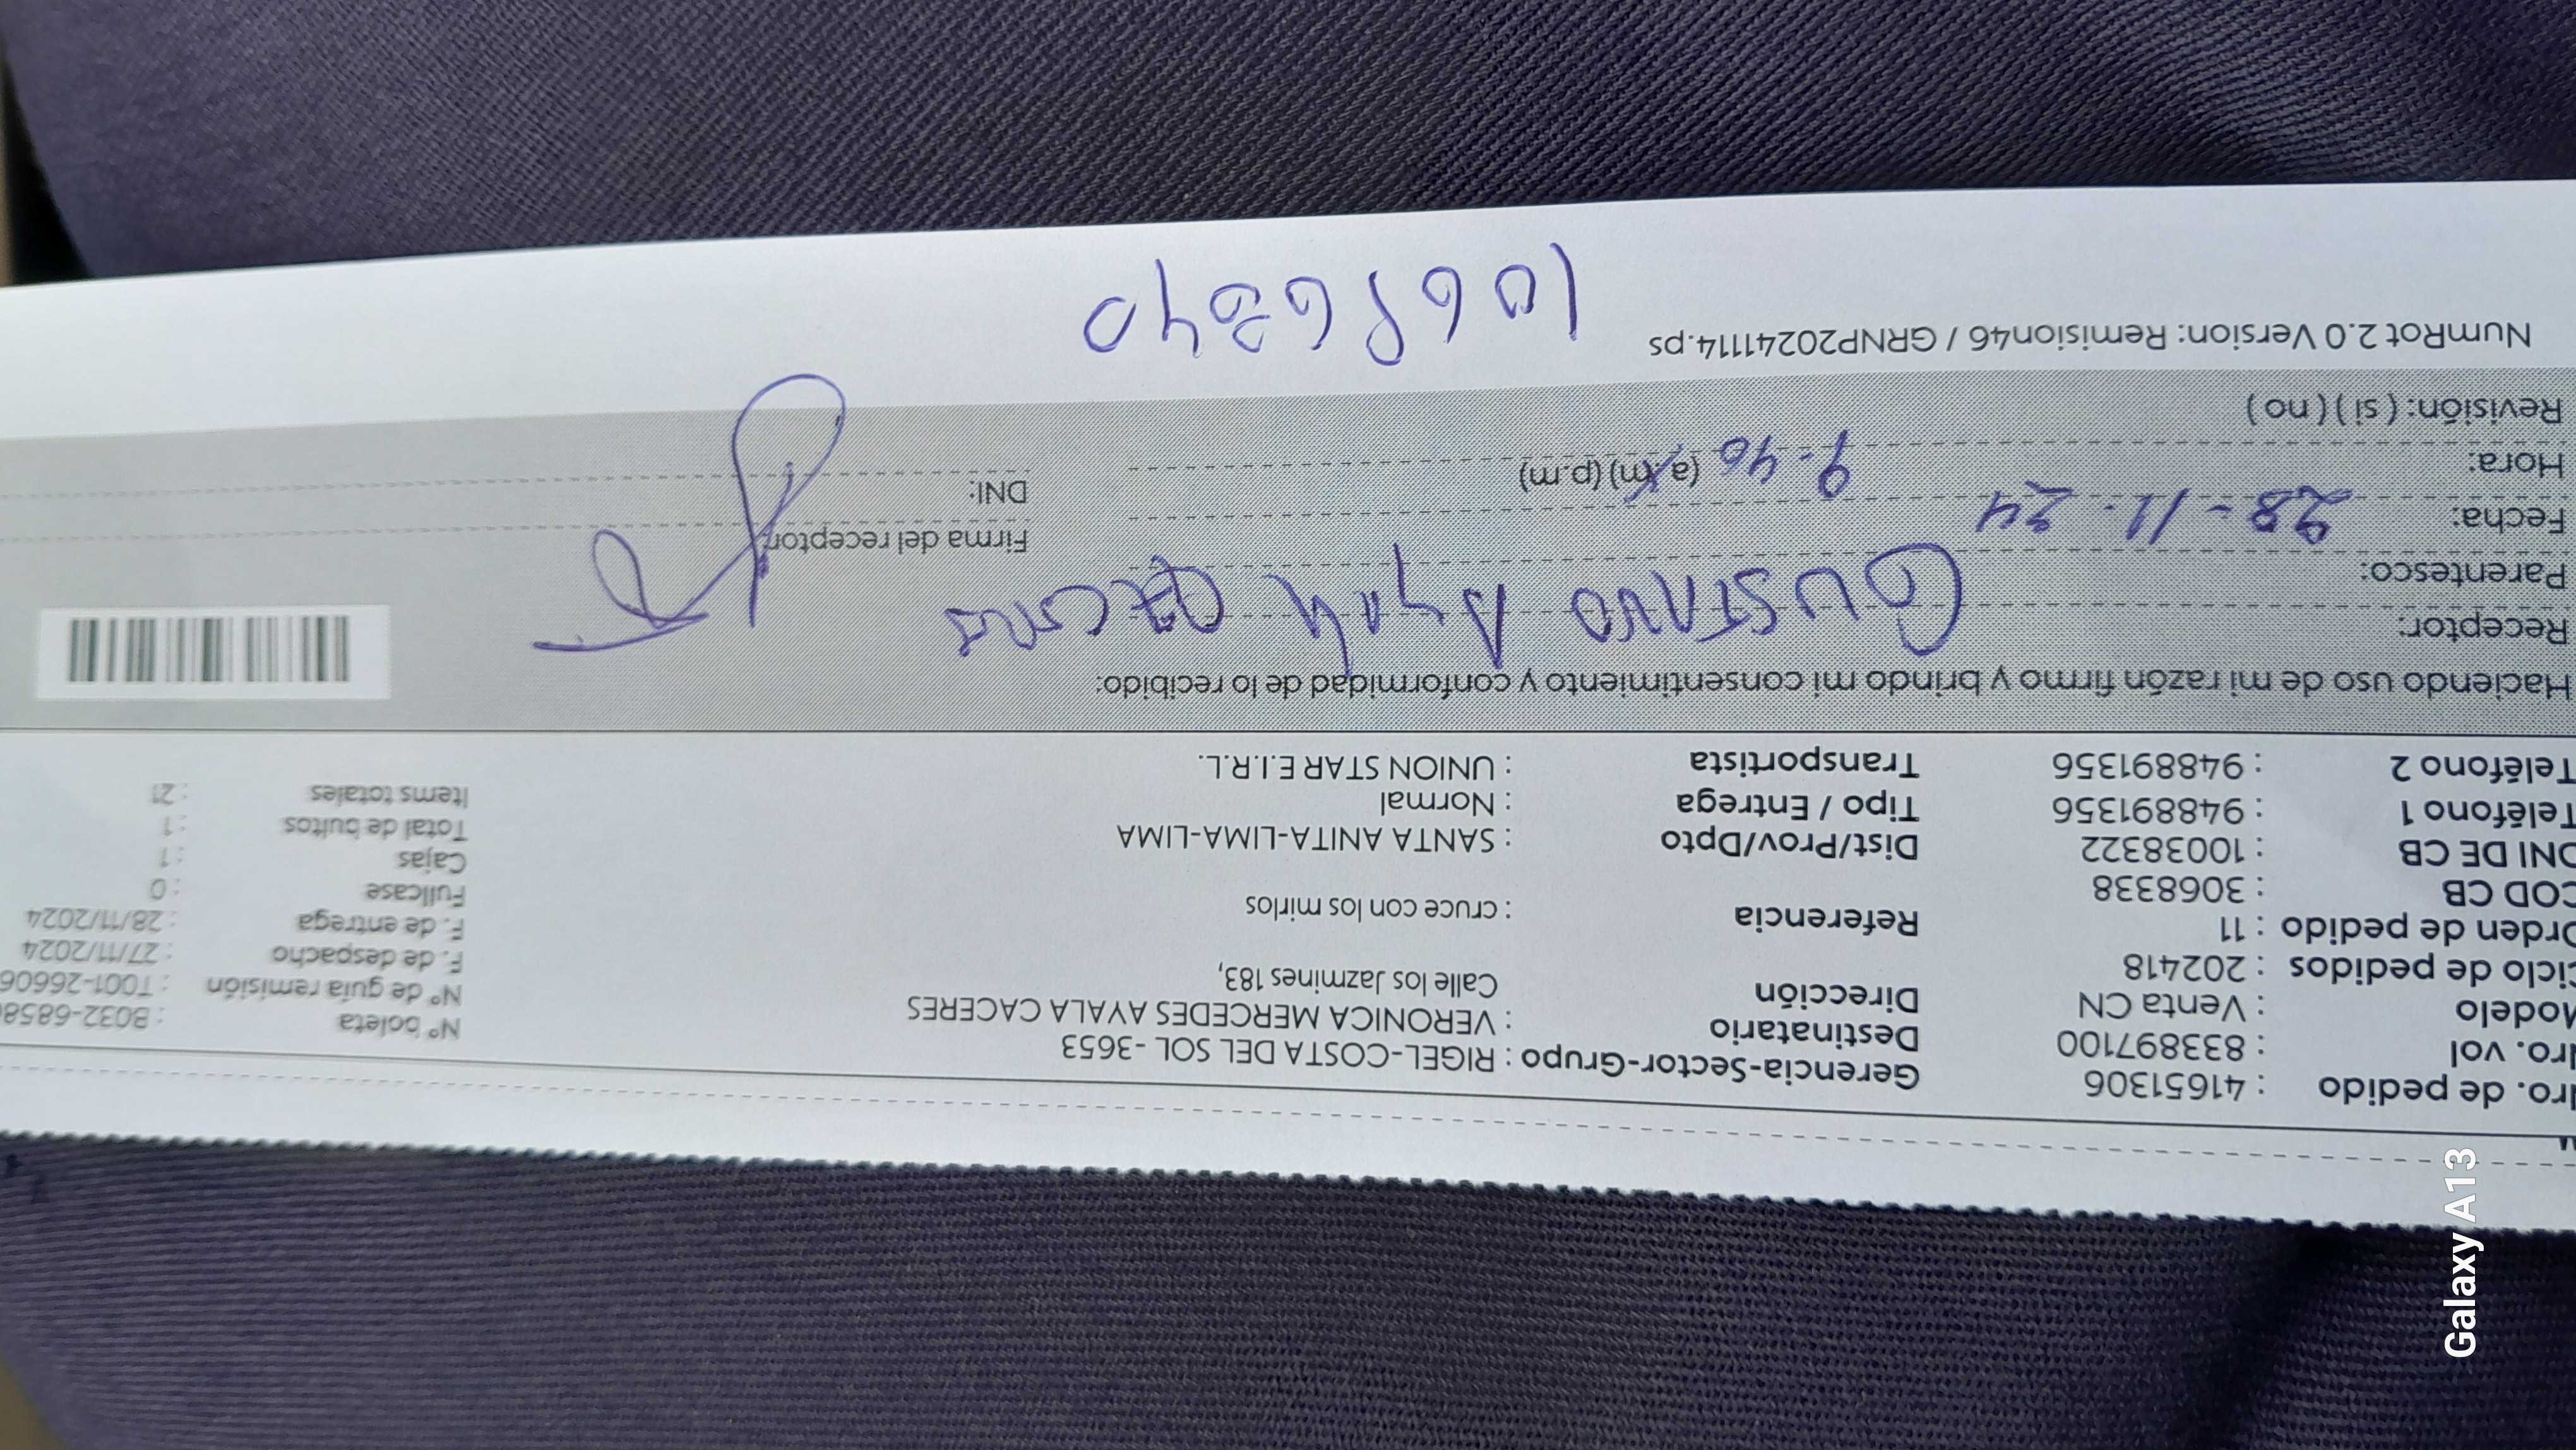 Nro. de pedido : 41651306
Nro. vol : 833897100
Modelo : Venta CN
Ciclo de pedidos : 202418
Orden de pedido : 11
COD CB : 3068338
DNI DE CB : 10038322
Teléfono 1 : 948891356
Teléfono 2 : 948891356
Gerencia-Sector-Grupo : RIGEL-COSTA DEL SOL -3653
Destinatario : VERONICA MERCEDES AYALA CACERES
Dirección Calle los Jazmines 183,
Referencia : cruce con los mirlos
Dist/Prov/Dpto : SANTA ANITA-LIMA-LIMA
Tipo / Entrega : Normal
Transportista : UNION STAR E.I.R.L.
N° boleta : B032-6858
N° de guía remisión : T001-26606
F. de despacho : 27/11/2024
F. de entrega : 28/11/2024
Fullcase : 0
Cajas : 1
Total de bultos : 1
Items totales : 21
Haciendo uso de mi razón firmo y brindo mi consentimiento y conformidad de lo recibido:
Receptor: GUSTAVO Ayala
Parentesco:
Fecha: 28-11-24
Hora: 9-40 (a.m) (p.m)
Revisión: ( si ) ( no )
Firma del receptor:
DNI:
NumRot 2.0 Version: Remision46 / GRNP20241114.ps
Galaxy A13